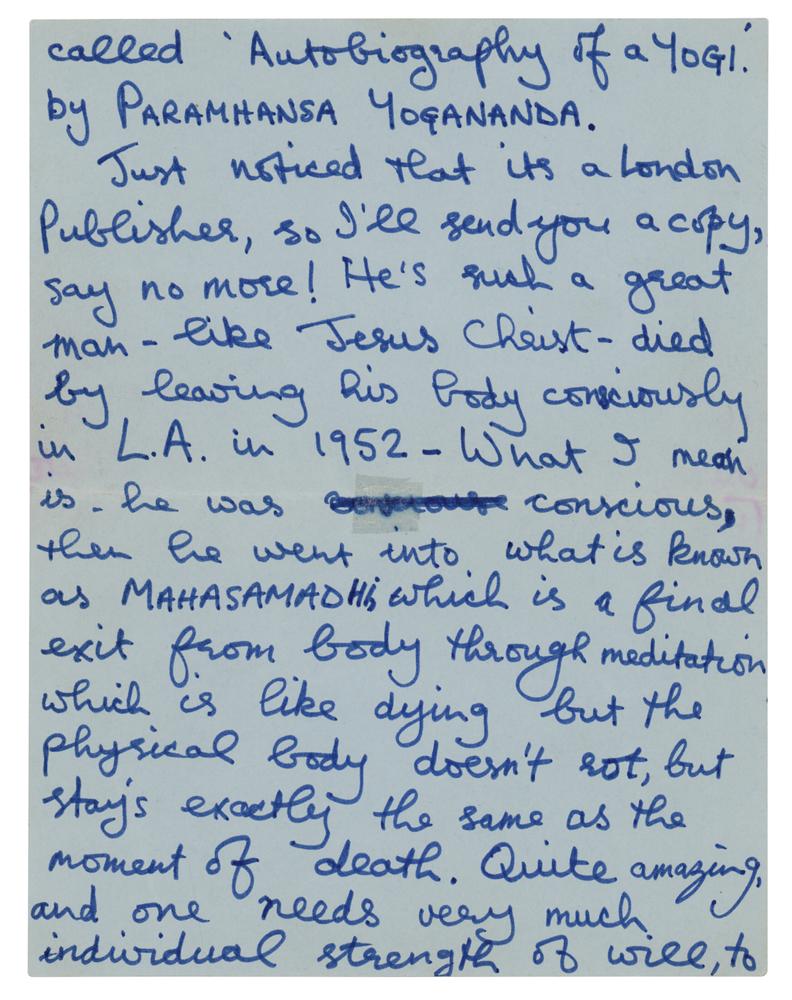 called 'Autobiography of a YOGI.'
by PARAMHANSA YOGANANDA.
Just noticed that its a London
Publisher, so I'll send you a copy,
say no more! He's such a great
man - like Jesus Christ - died
by leaving his body consciously
in L.A. in 1952 - What I mean
is - he was conscious,
then he went into what is known
as MAHASAMADHi which is a final
exit from body through meditation
which is like dying but the
physical body doesn't rot, but
stay's exactly the same as the
moment of death. Quite amazing,
and one needs very much
individual strength of will, to